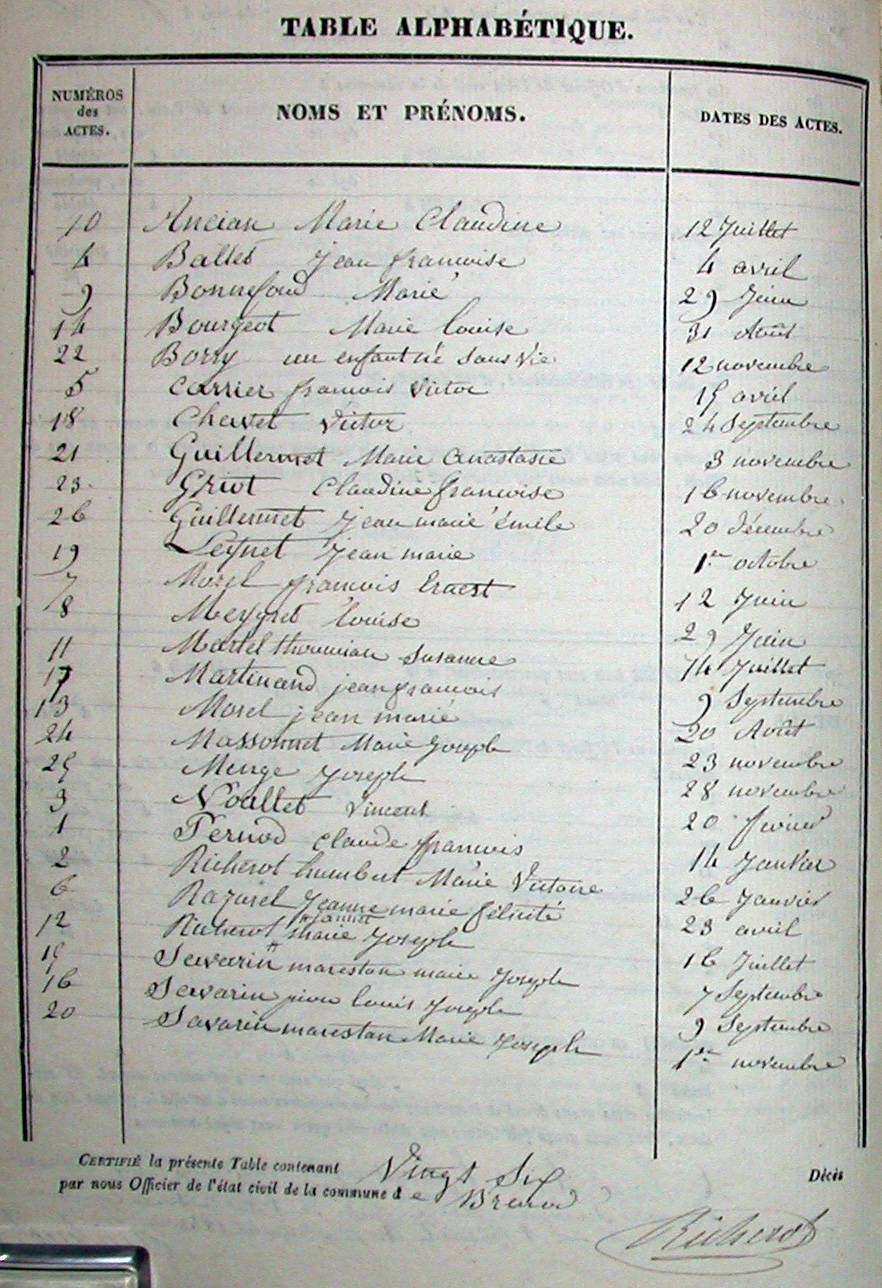 TABLE ALPHABÉTIQUE.
NUMÉROS des ACTES. NOMS ET PRÉNOMS. DATES DES ACTES.
10 Ancian Marie Claudine 12 Juillet
4 Ballet jean francoise 4 avril
9 Bonnefoud Marie 29 Juin
14 Bourgeot Marie louise 31 Août
22 Borry un enfant né sans vie 12 novembre
5 Carrier francois Victor 15 avril
18 Chavet Victor 24 Septembre
21 Guillermet Marie anastasie 3 novembre
23. Griot Claudine francoise 16 novembre
26 Guillermet jean marie émile 20 décembre
19 Leynet jean marie 1er octobre
7 Morel francois Ernest 12 Juin
8 Meygret louise 29 Juin
11 Martel Susanne 14 Juillet
17 Martinand jean francois 9 Septembre
13 Morel jean marie 20 Août
24 Massonnet Marie Joseph 23 novembre
25 Menge Joseph 28 novembre
3 Noallet Vincent 20 fevrier
1 Pernod claude francois 14 Janvier
2 Richerot humbert Marie Victoire 26 Janvier
6 Razurel Jeanne marie félicité 23 avril
12 Richerot marie Joseph 16 Juillet
15 Savarin marestan marie Joseph 7 Septembre
16 Savarin louis Joseph 9 Septembre
20 Savarin marestan Marie Joseph 1er novembre
CERTIFIÉ la présente Table contenant Vingt Six Décès
par nous Officier de l'état civil de la commune de Brenod
Richerot